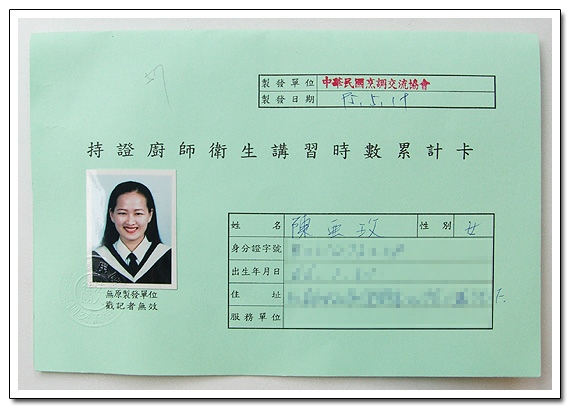 製發單位 中華民國烹調交流協會
製發日期 95.5.19
持證廚師衛生講習時數累計卡
姓名 陳亞玫 性別 女
身分證字號
出生年月日
住址
服務單位
無原製發單位
戳記者無效